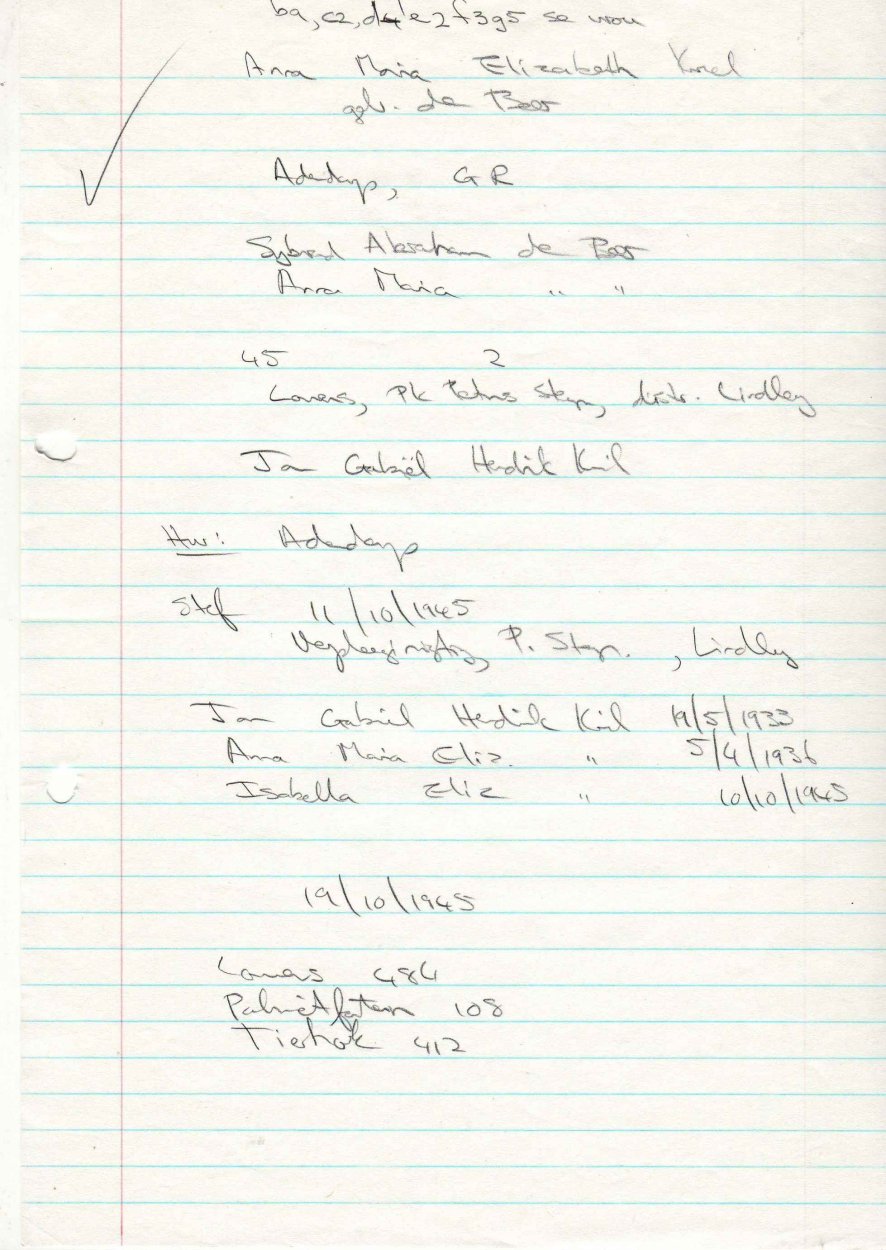 ba, c2, d4 e2 f3 g5 se vrou
Anna Maria Elizabeth
geb. de Beer
Aderdorp, GR
Sybrand Abraham de Beer
Anna Maria " "
45 2
Louens, Pk Petrus Steyn, distr. Lindley
Jan Gabriël Hendrik
Hw: Aderdorp
Stef 11/10/1945
Verpleeginrigting, P. Steyn. , Lindley
Jan Gabriël Hendrik 19/5/1933
Anna Maria Eliz. " 5/4/1936
Isabella Eliz " 10/10/1945
19/10/1945
484
Palmietfontein 108
Tierhoek 412